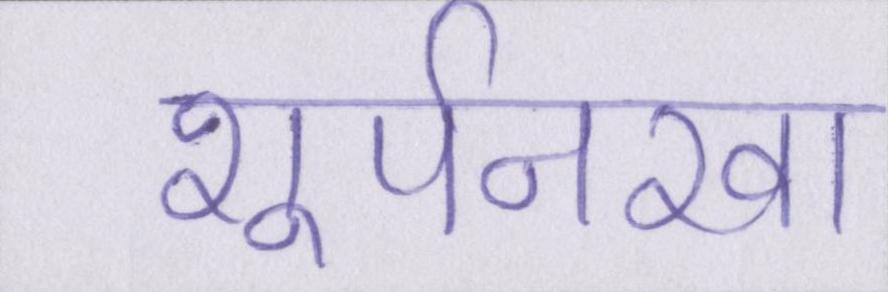 शूर्पनखा